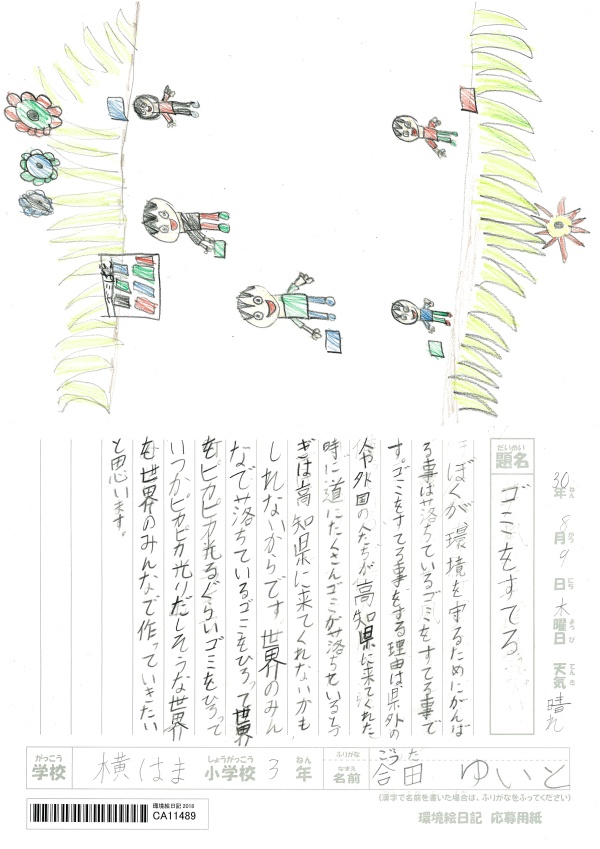 30年 8月 9日 木曜日 天気 晴れ
ねん がつ にち ようび てんき
だいめい
題名
ゴミをすてる
ぼくが環境を守るためにがんば
る事は落ちているゴミをすてる事で
す。ゴミをすてる事をする理由は県外の
人や外国の人たちが高知県に来てくれた
時に道にたくさんゴミが落ちていると
ぎは高知県に来てくれないかも
しれないからです。世界のみん
なで落ちているゴミをひろって世界
をピカピカ光るぐらいゴミをひろって
いつかピカピカ光りだしそうな世界
を世界のみんなで作っていきたい
と思います。
がっこう しょうがっこう ねん ふりがな ごうだ
学校 横はま 小学校 3年 なまえ 名前 合田 ゆいと
(漢字で名前を書いた場合は、ふりがなをふってください)
環境絵日記 2018
CA11489
環境絵日記 応募用紙